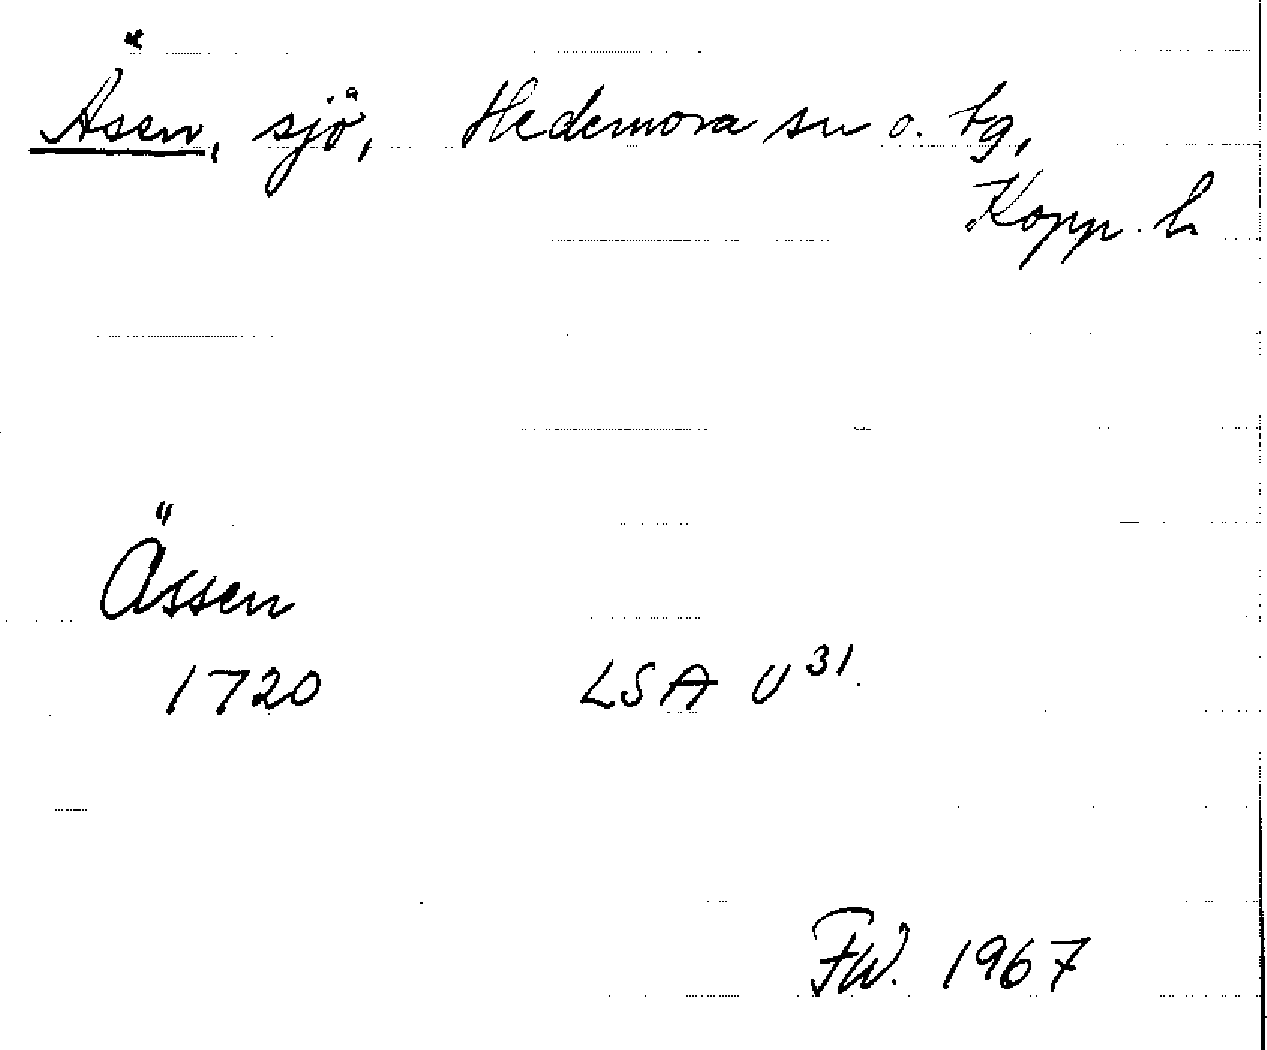 Åsen, sjö, Hedemora sn o. tg,
Kopp. l.
Össen
1720 LSA U³¹
FW. 1967